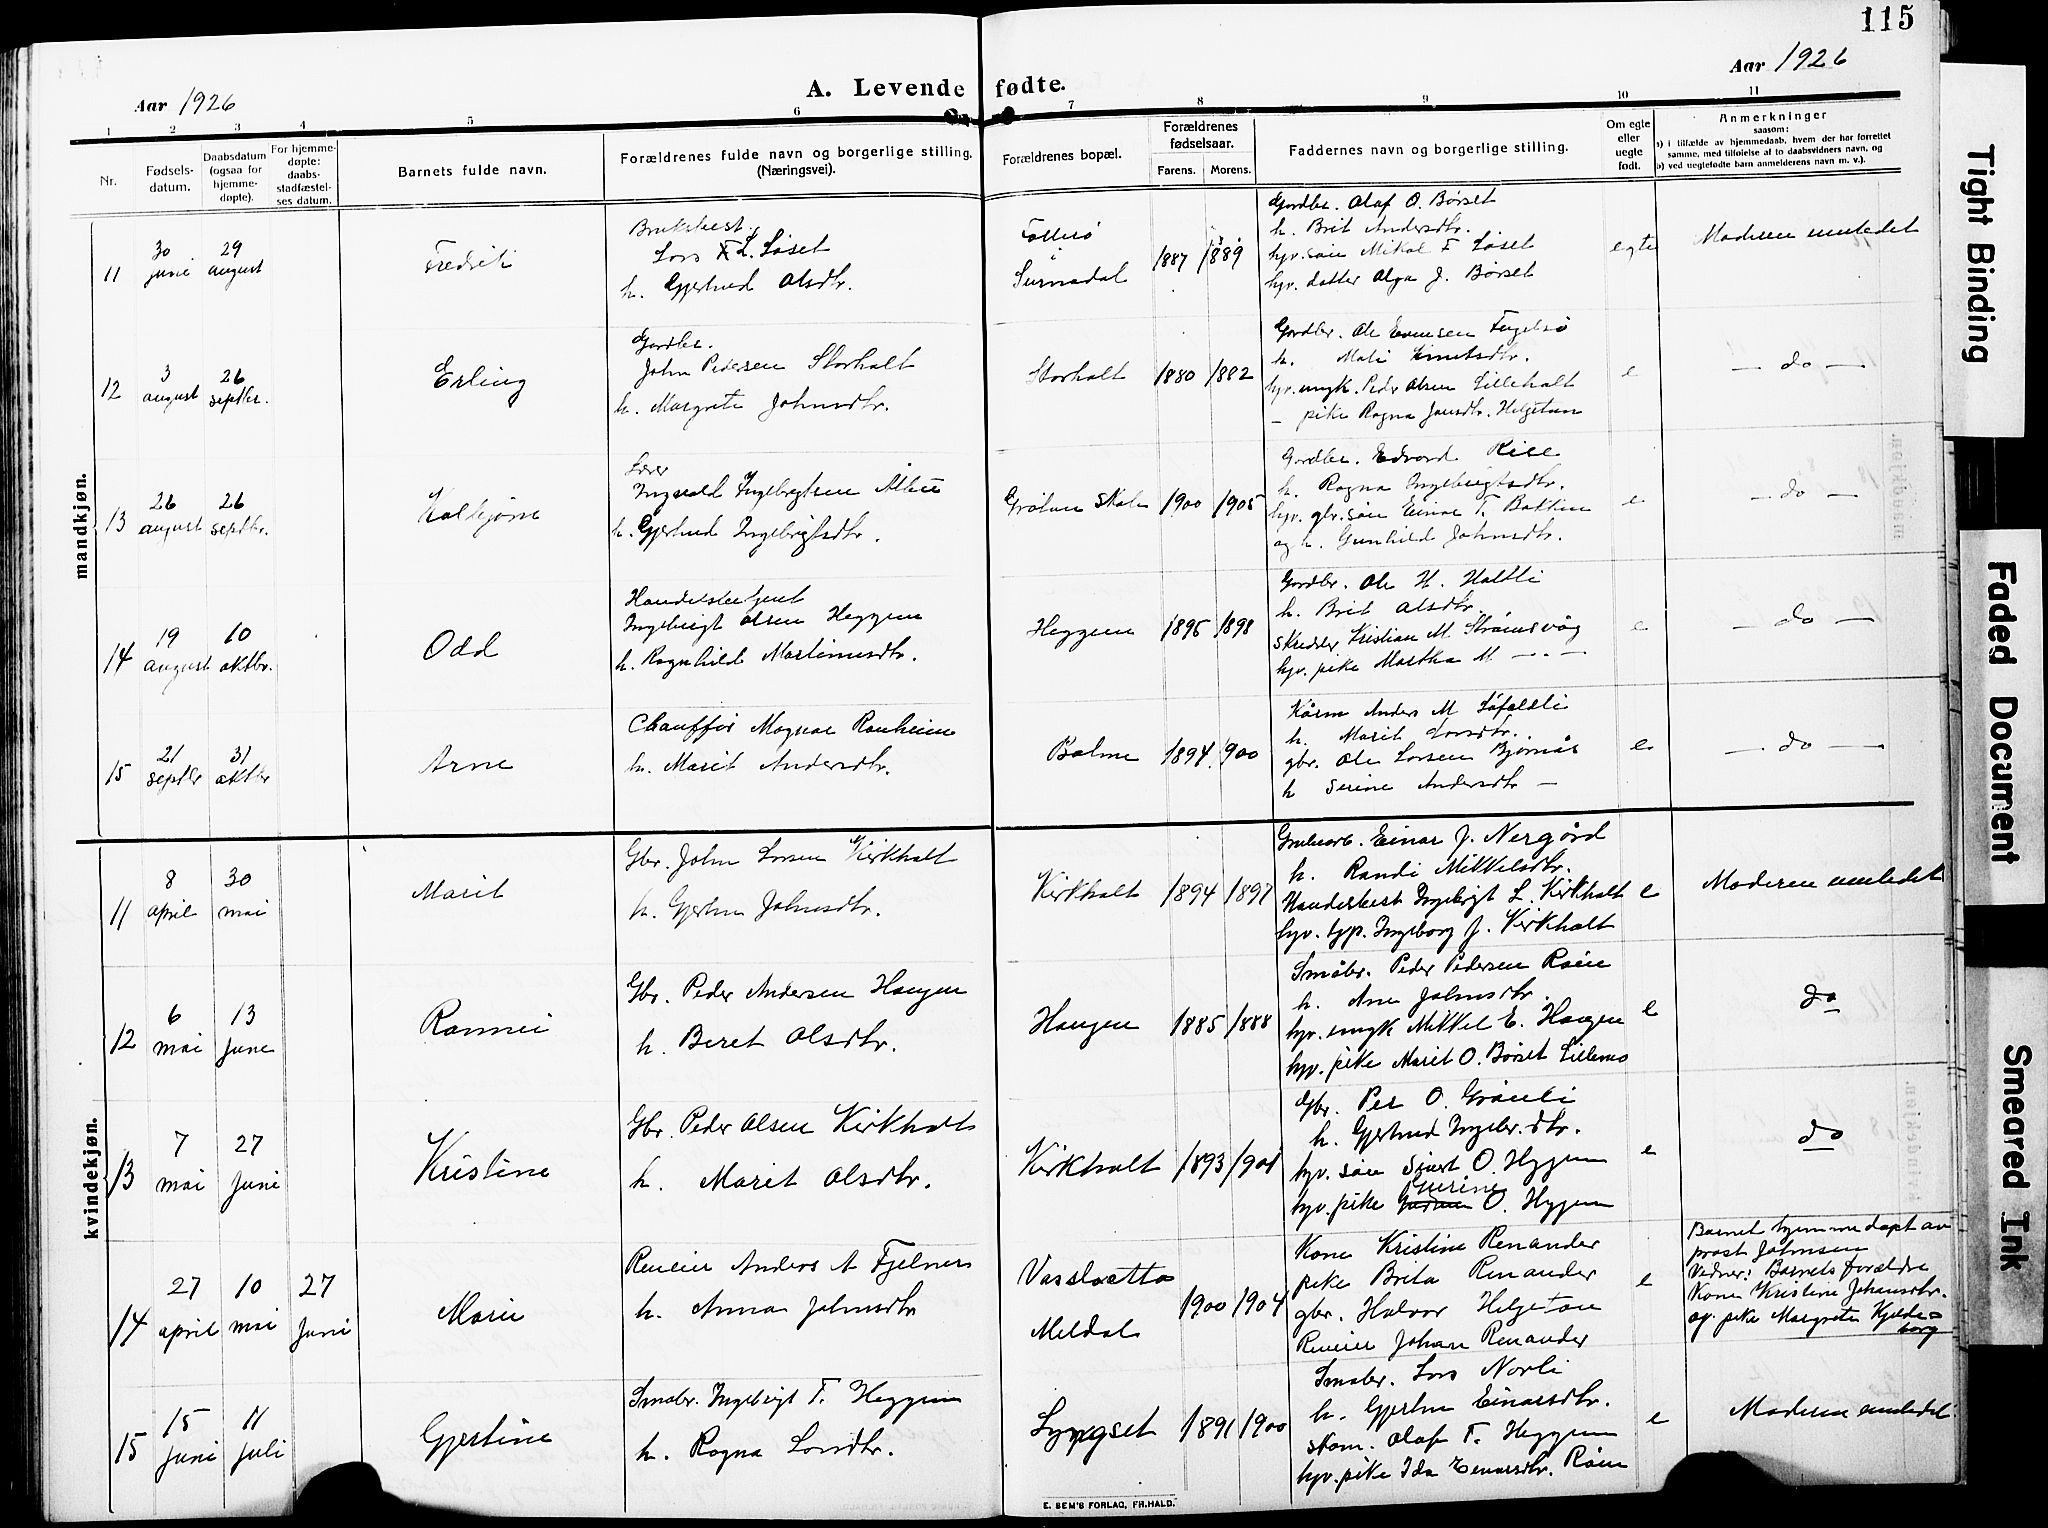 115
Aar 1926
A. Levende fødte.
Aar 1926
1 2 3 4 5 6 7 8 9 10 11
Nr.
Fødsels-
datum.
Daabsdatum
(ogsaa for
hjemme-
døpte).
For hjemme-
døpte:
daabs-
stadfæstel-
ses datum.
Barnets fulde navn.
Forældrenes fulde navn og borgerlige stilling.
(Næringsvei).
Forældrenes bopæl.
Forældrenes
fødselsaar.
Farens. Morens.
Faddernes navn og borgerlige stilling.
Om egte
eller
uegte
født.
Anmerkninger
saasom:
a) i tilfælde av hjemmedaab, hvem der har forrettet
samme, med tilføielse af to daabsvidners navn, og
b) ved uegtefødte barn anmelderens navn m. v.).
mandkjøn.
11
30
juni
29
august
Fredrik
Bruksbest.
Lars L. Løset
h. Gjertrud Olsdtr.
Follesø
i
Surnadal
1887 1889
Gardbr. Olaf O. Børset
h. Brit Andersdtr.
hjv. søn Mikal F Løset
hjv. datter Olga J. Børset
egte
Moderen innledet
12
3
august
26
septbr.
Erling
Gardbr.
John Pedersen Storholt
h. Margrete Johnsdtr.
Storholt
1880 1882
Gardbr. Ole Evensen Fugelsø
h. Mali Knutsdtr.
hjv. ungk. Peder Olsen Lilleholt
— pike Ragna Jonsdtr. Helgetun
e
— do —
13
26
august
26
septbr.
Kolbjørn
Lærer
Ingvald Ingebrigtsen Albu
h. Gjertrud Ingebrigtsdtr.
Grötan Skole
1900 1905
Gardbr. Edvard Riee
h. Ragna Ingebrigtsdtr.
hjv. gbr. søn Einar T. Bakken
og h. Gunhild Johnsdtr.
e
— do —
14
19
august
10
oktbr.
Odd
Handelsbetjent
Ingebrigt Olsen Heggem
h. Ragnhild Martinusdtr.
Heggem
1896 1898
Gardbr. Ole H. Holtli
h. Brit Olsdtr.
Skredder Kristian M. Strømsvåg
hjv. pike Martha M — . —
e
— do —
15
21
septbr
31
oktbr
Arne
Chauffør Magnar Ranheim
h. Marit Andersdtr.
Bolme
1894 1900
Anders M Løfaldli
h. Marit Larsdtr.
gbr. Ole Larsen Bjørnås
h Serine Andersdtr —
e
— do —
kvindekjøn.
11
8
april
30
mai
Marit
Gbr. John Larsen Kirkholt
h. Gjertru Johnsdtr.
Kirkholt
1894 1897
Grubearb. Einar J. Nergård
h. Randi Mikkelsdtr.
Handelsbest Ingebrigt L. Kirkholt
hjv. Ingeborg J. Kirkholt
e
Moderen innledet
12
6
mai
13
June
Ranvei
Gbr. Peder Andersen Haugen
h. Beret Olsdtr.
Haugen
1885 1888
Småbr. Peder Pedersen Røen
h. Ane Johnsdtr.
hjv. ungk Mikkel E. Haugen
hjv. pike Marit O. Børset Lillemo
e
do
13
7
mai
27
Juni
Kristine
Gbr. Peder Olsen Kirkholt
h. Marit Olsdtr.
Kirkholt
1893 1901
Gbr. Per O. Grønli
h. Gjertrud Ingebr.dtr.
hjv. søn Sivert O. Hyggen
Gurine
hjv. pike O. Hyggen
e
do
14
27
april
10
mai
27
Juni
Marie
Reneier Anders A Fjelner
h. Anna Johnsdtr
Vasslaetta
Meldal
1900 1904
Kone Kristine Renander
pike Brita Renander
gbr. Halvor Helgetun
Reneier Johan Renander
e
Barnet hjemmedøpt av
prost Johnsen
Vidner: Barnets forældre
Kone Kristine Johansdtr.
og pike Margrete Kjelds-
borg
15
15
Juni
11
Juli
Gjertine
Småbr. Ingebrigt T. Heggem
h. Ragna Larsdtr.
Lyngset
1891 1900
Småbr. Lars Norli
h. Gjertru Einarsdtr.
skom. Olaf T. Heggem
hjv. pike Ida Einarsdtr. Røen
e
Moderen innledet
E. SEM'S FORLAG, FR.HALD.
Tight Binding
Faded Document
Smeared Ink